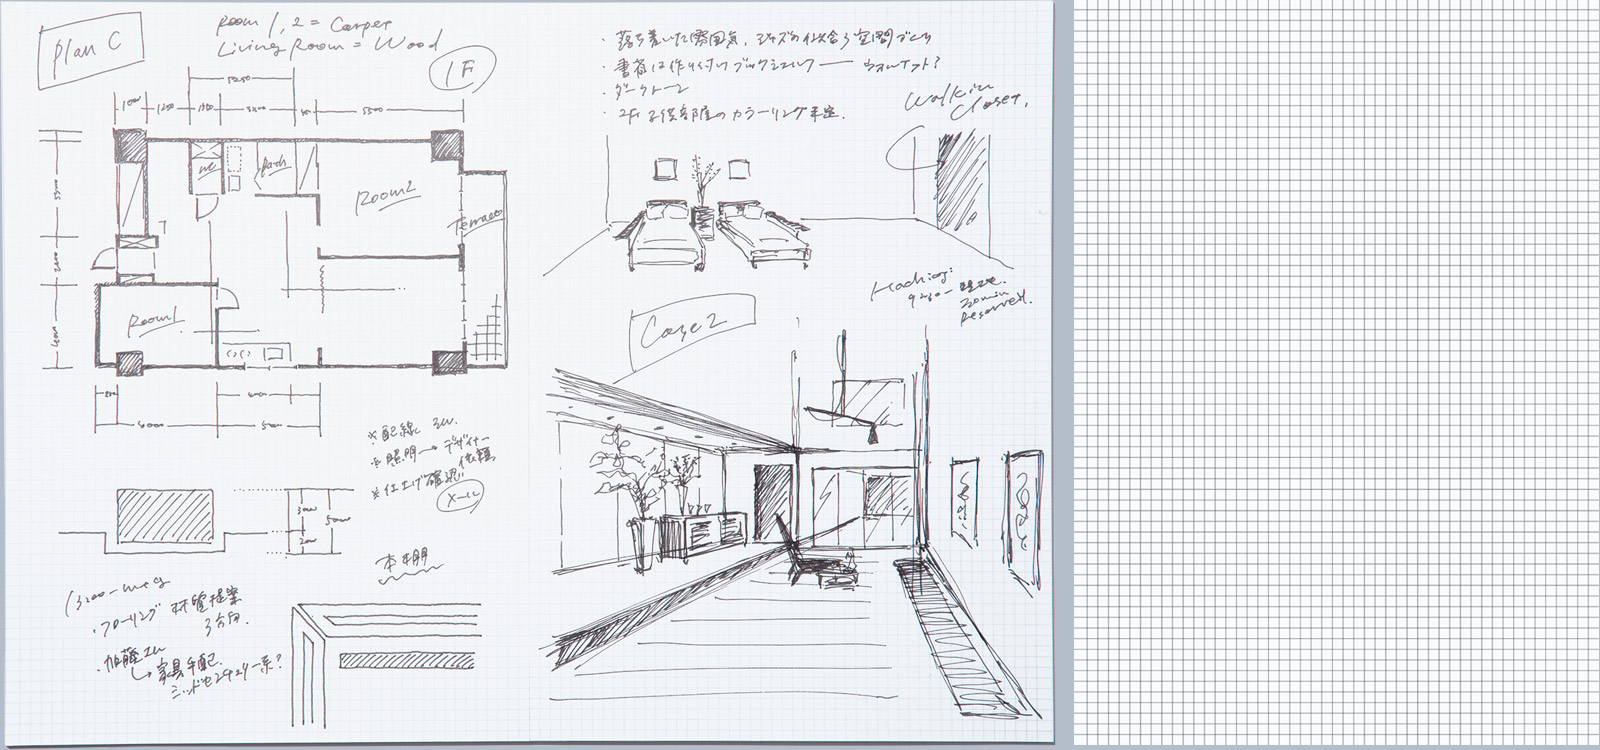 Plan C
Room 1, 2 = Carpet
Living Room = Wood
1F
5250
1000
5500
WC
Bath
Room2
Terrace
Room1
※配線
※照明→デザイナー
依頼
※仕上げ確認
本棚
13200-mtg
・フローリング 材質提案
3方向.
・加藤さん
家具手配.
ミッドセンチュリー系?
・落ち着いた雰囲気. ジャズの似合う空間づくり
・書斎は作り付けブックシェルフ ― ウォルナット?
・ダークトーン
・2F. 子供部屋のカラーリング
Walk in
Closet.
30min
Reserved.
Case 2